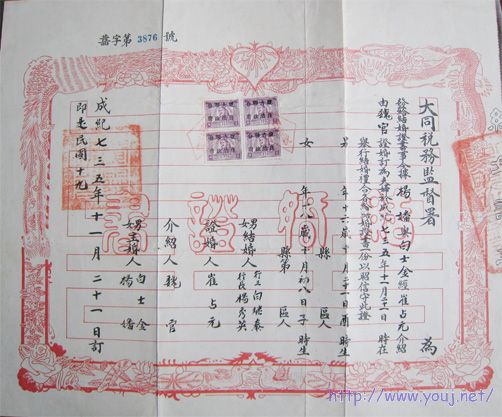 字第 3876 號
大同税務監督署 為
發給結婚證書事今據 楊 與白士金經崔占元介紹
由魏官證婚訂為夫婦於成紀七三五年十一月二十一日 時在
舉行結婚禮合 發給證書 份以昭信守此證
男 年十六歲十月二十日酉時生
縣 區人
女 年十八歲十月初八日子時生
縣第 區人
男結婚人 行三 白 泰
女結婚人 行長 楊秀英
證婚人 崔占元
介紹人 魏官
男主婚人 白士金
女 楊
成紀七三五年十一月二十一日訂
即是民國十九
http://www.youj.net/